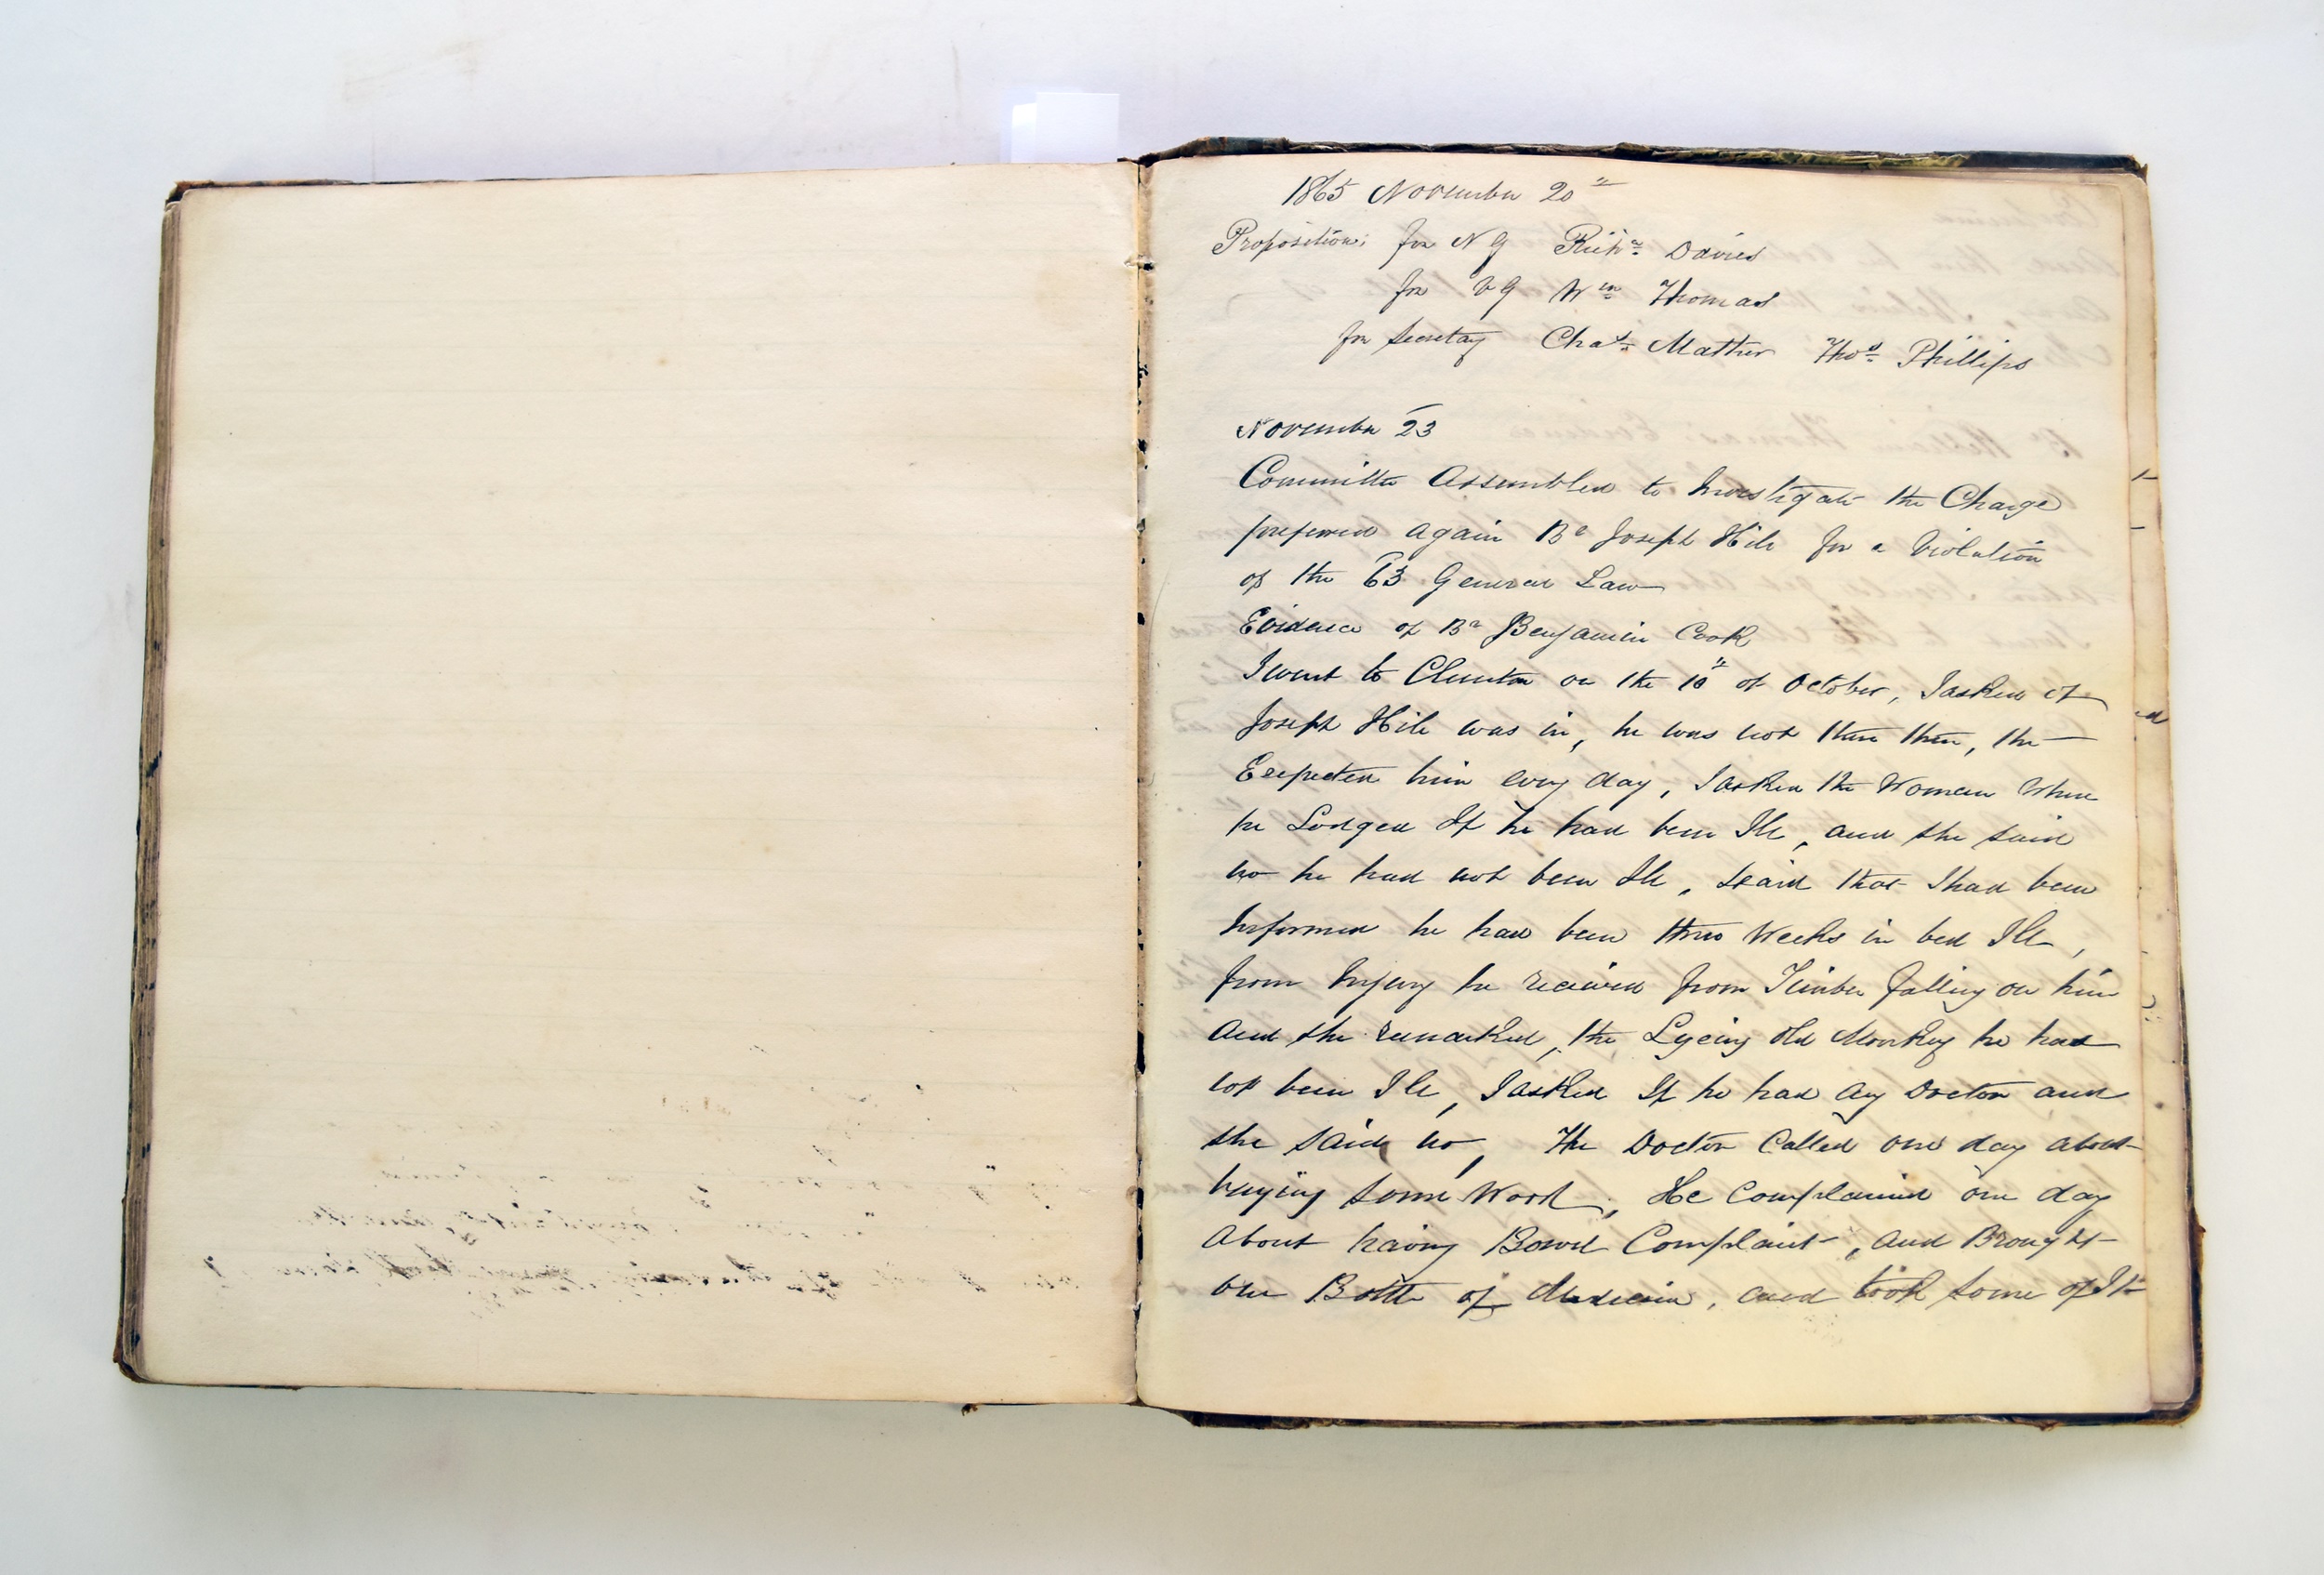 1865 November 20"
Propositions for N G Richd Davies
for V G Wm Thomas
for Secretary Chas Mather Thos Phillips
November 23
Committee Assembled to Investigate the Charge
prefered again Br Joseph Hile for a Violation
of the 63 General Law
Evidence of Br Benjamin Cook
I went to Clunton on the 10" of October, I asked if
Joseph Hile was in, he was not there then, the
Expected him every day, I asked the Woman Where
he Lodged If he had been Ill, and she said
no he had not been Ill, I said that I had been
Informed he had been three Weeks in bed Ill,
from Injury he received from Timber falling on him
and she remarked, the Lyeing Old Monkey he had
not been Ill, I asked If he had any Doctor and
she said no, The Doctor Called one day about
buying some Wood, He Complained one day
About having Bowel Complaint, and Brought
one Bottle of Medicine, and took some of It